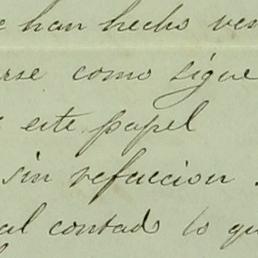 han hecho ven
rse como sigue
este papel
sin refaccion
al contado lo qu